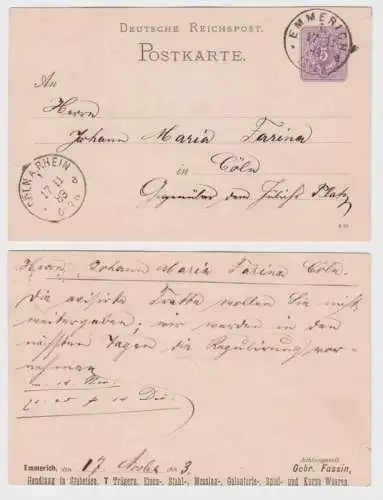 DEUTSCHE REICHSPOST.
POSTKARTE.
EMMERICH
An
Herrn
Johann Maria Farina
in Cöln
Gegenüber dem Jülichs Platz
CÖLN RHEIN
17 11
83
Herrn Johann Maria Farina Cöln.
Die avisirte Tratte wollen Sie nicht
weitergeben; wir werden in den
nächsten Tagen die Regulirung vor-
nehmen
Emmerich, den 17. 3.
Achtungsvoll
Gebr. Fassin,
Handlung in Stabeisen, T Trägern, Eisen-, Stahl-, Messing-, Galanterie-, Spiel- und Kurze Waaren.